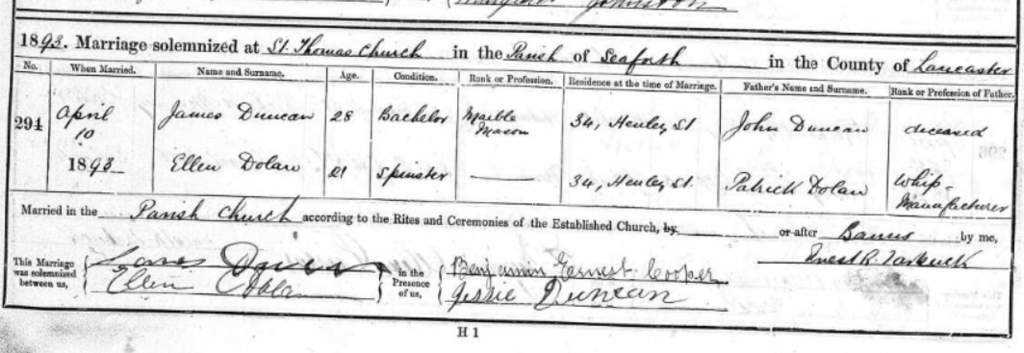 Johnston
1893. Marriage solemnized at St. Thomas Church in the Parish of Seaforth in the County of Lancaster
No. When Married. Name and Surname. Age. Condition. Rank or Profession. Residence at the time of Marriage. Father's Name and Surname. Rank or Profession of Father.
294 April 10 1893 James Duncan 28 Bachelor Marble Mason 34, Henley St John Duncan deceased
Ellen Dolan 21 Spinster 34, Henley St. Patrick Dolan Whip-Manufacturer
Married in the Parish Church according to the Rites and Ceremonies of the Established Church, by or after Banns by me,
This Marriage was solemnized between us, James Duncan Ellen Dolan in the Presence of us, Benjamin Ernest Cooper Jessie Duncan
H 1